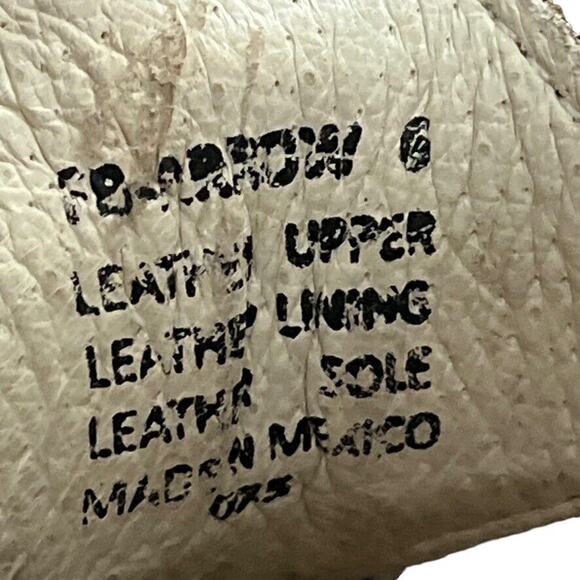 FB-ARROW 6
LEATHER UPPER
LEATHER LINING
LEATHER SOLE
MADE IN MEXICO